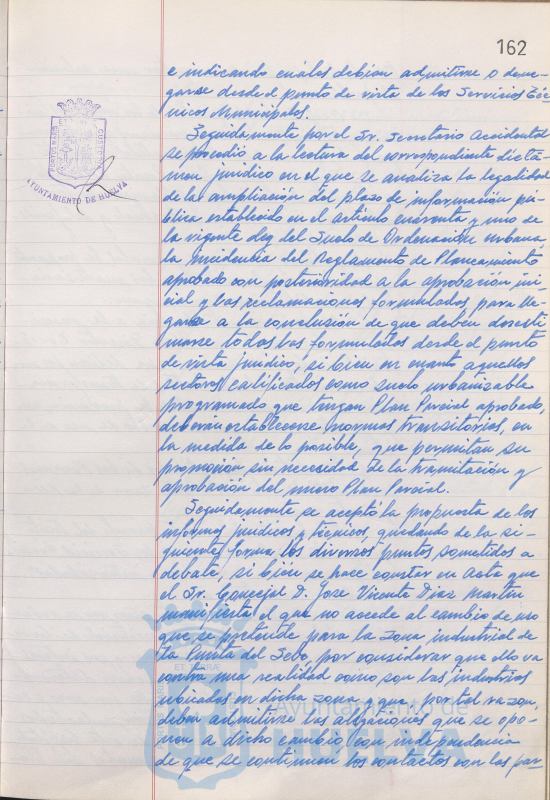 162
e indicando cuáles debían admitirse o dene-
garse desde el punto de vista de los Servicios Téc-
nicos Municipales.
Seguidamente por el Sr. Secretario Accidental
se procedió a la lectura del correspondiente dictá-
men jurídico en el que se analiza la legalidad
de la ampliación del plazo de información pú-
blica establecido en el artículo cuarenta y uno de
la vigente Ley del Suelo de Ordenación urbana,
la incidencia del Reglamento de Planeamiento
aprobado con posterioridad a la aprobación ini-
cial y las reclamaciones formuladas para lle-
garse a la conclusión de que deben desesti-
marse todas las formuladas desde el punto
de vista jurídico, si bien en cuanto aquellos
sectores calificados como suelo urbanizable
programado que tengan Plan Parcial aprobado,
deberán establecerse normas transitorias, en
la medida de lo posible, que permitan su
promoción sin necesidad de la tramitación y
aprobación del nuevo Plan Parcial.
Seguidamente se aceptó la propuesta de los
informes jurídicos y técnicos, quedando de la si-
guiente forma los diversos puntos sometidos a
debate, si bien se hace constar en Acta que
el Sr. Concejal D. Jose Vicente Diaz Martin
manifiesta el que no accede al cambio de uso
que se pretende para la zona industrial de
la Punta del Sebo, por considerar que ello va
contra una realidad como son las industrias
ubicadas en dicha zona y que, por tal razon,
deben admitirse las alegaciones que se opo-
nen a dicho cambio, con independencia
de que se continuen los contactos con las par-
AYUNTAMIENTO DE HUELVA
PORTUS MARIS
ET TERRÆ
CUSTODIA
Ayuntamiento de
HUELVA